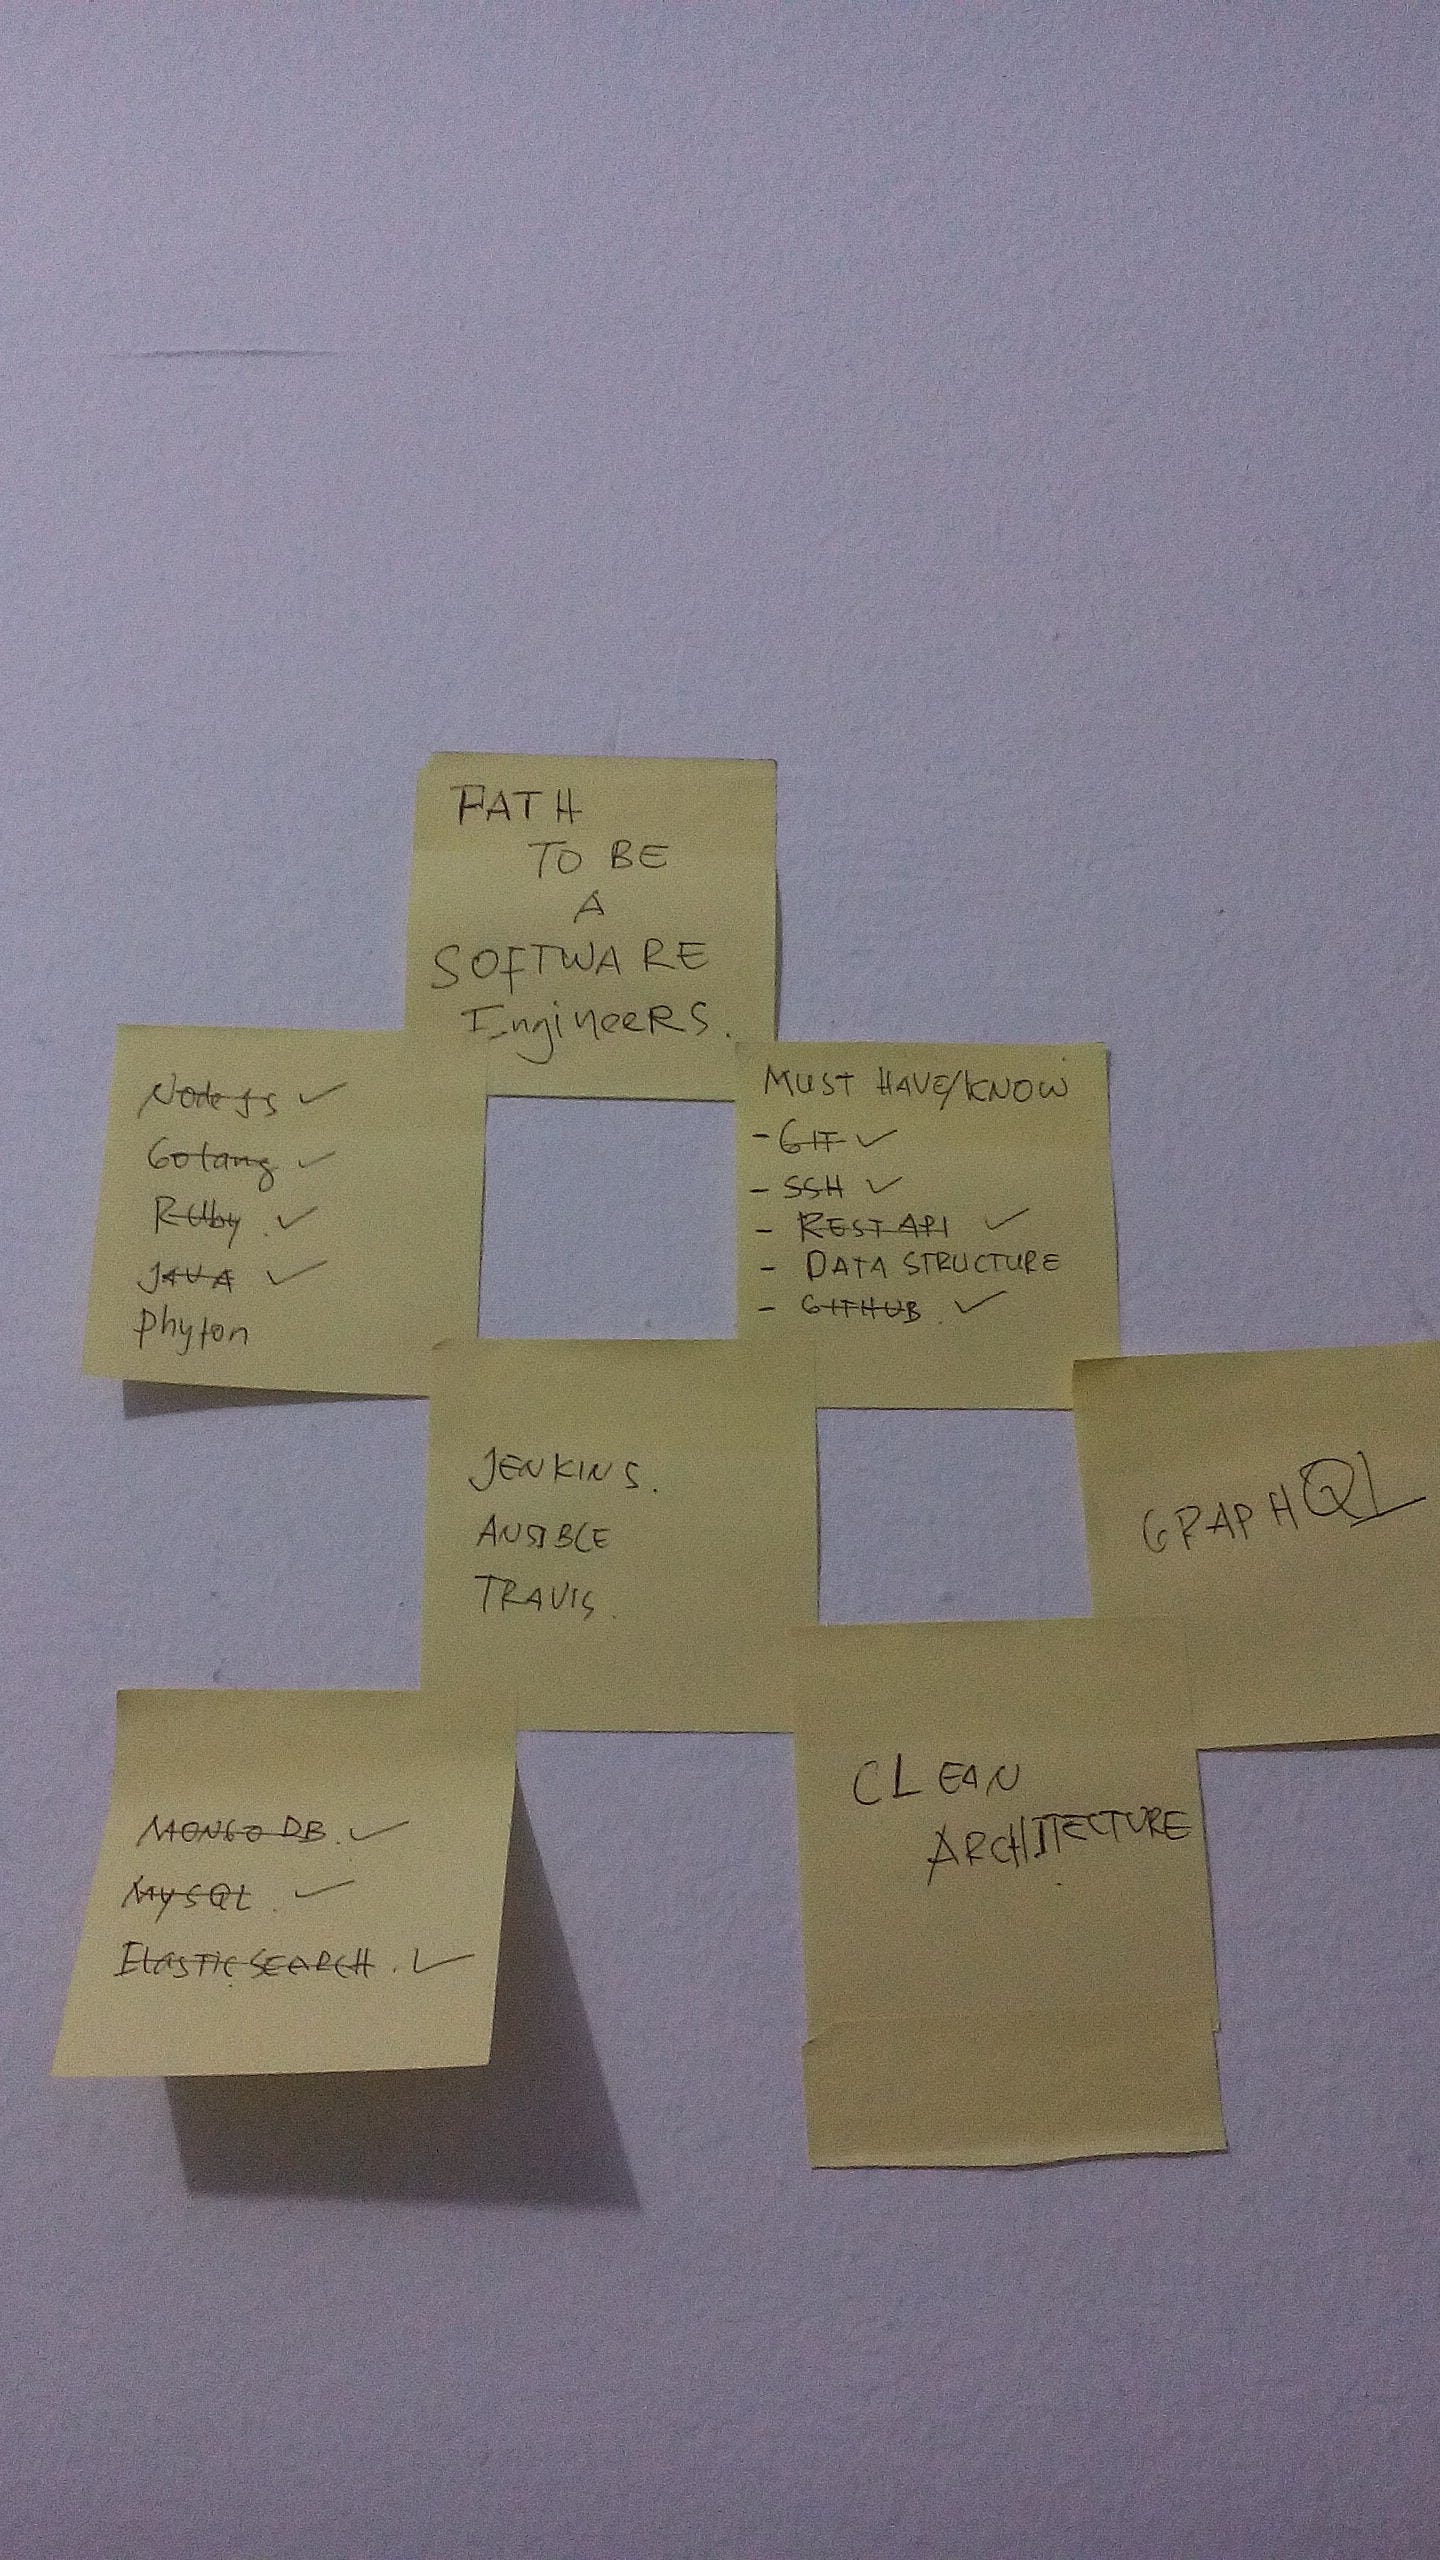 PATH
TO BE
A
SOFTWARE
EngineeRS.
Node Js ✓
Golang ✓
RUby. ✓
JAVA ✓
Phyton
MUST HAVE/KNOW
- GIT ✓
- SSH ✓
- REST API ✓
- DATA STRUCTURE
- GITHUB. ✓
JENKINS.
ANSIBLE
TRAVIS.
GRAPHQL
CLEAN
ARCHITECTURE
MONGO DB. ✓
MySQL. ✓
ElASTIC SEARCH. ✓